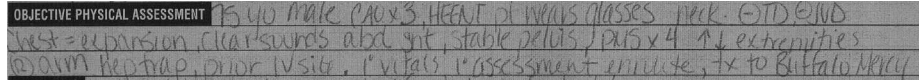 OBJECTIVE PHYSICAL ASSESSMENT 75 yo male CAOx3, HEENT pt wears glasses neck. ⊖TD, ⊖JVD
Chest = expansion, clear sounds abd snt, stable pelvis, pms x 4 ↑↓ extremities
arm heptrap, prior IV site. 1° vitals, 1° assessment enroute, tx to Buffalo Mercy